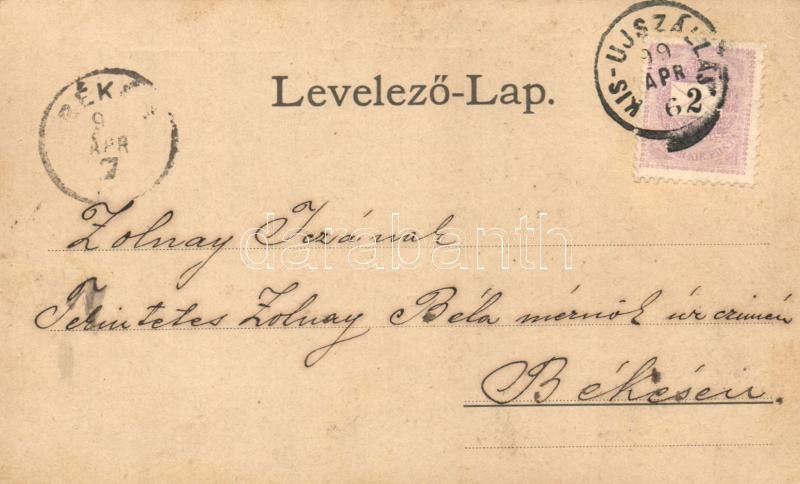 KIS-UJSZÁLLÁS
99
APR
6
2
BÉKÉS
9
APR
7
Levelező-Lap.
Zolnay Izának
darabanth
Tekintetes Zolnay Béla mérnök úr czimén
Békésen.